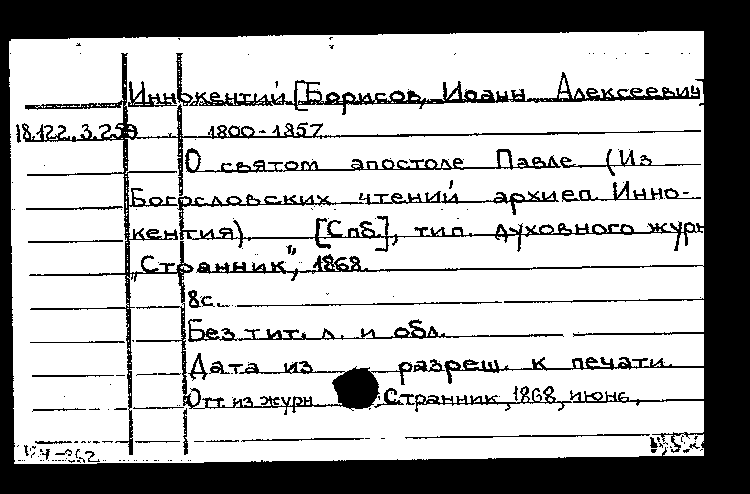 Иннокентий [Борисов, Иоанн Алексеевич]
18.122.3.259 1800-1857
О святом апостоле Павле (Из
Богословских чтений архиеп. Инно-
кентия). [Спб], тип. духовного журн
„Странник", 1868.
8с.
Без тит. л. и обл.
Дата из разреш. к печати.
Отт. из журн. Странник, 1868, июнь.